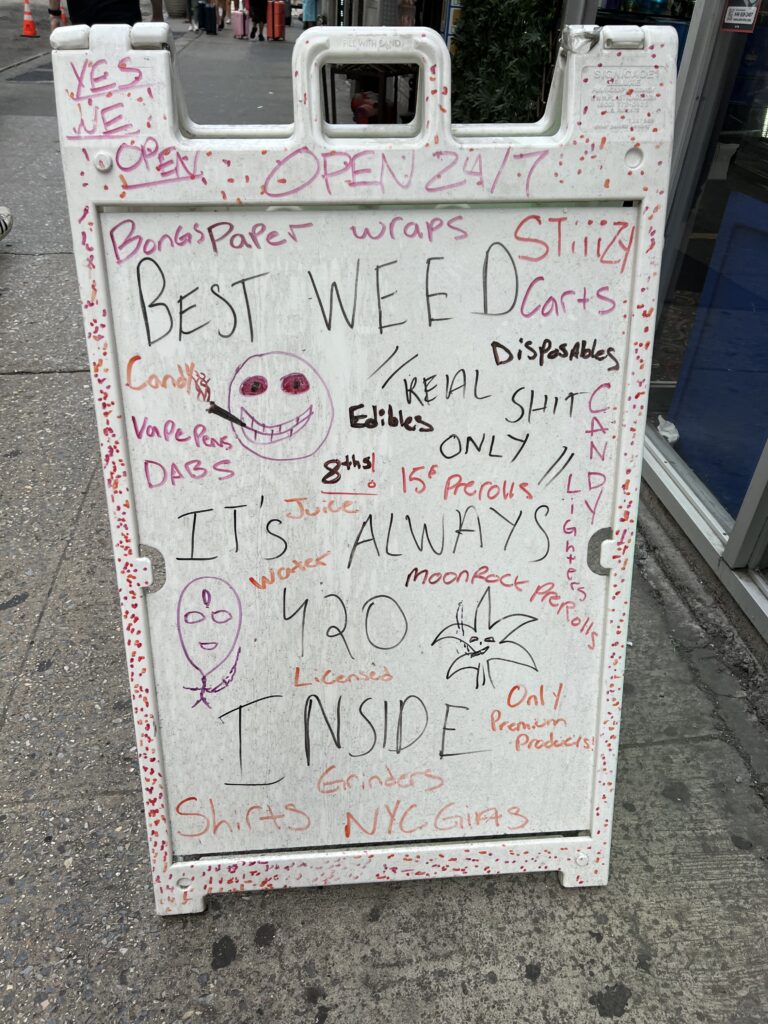 FILL WITH SAND
SIGNICADE
YES
WE
OPEN
OPEN 24/7
Bongs Paper wraps STiiiZY
BEST WEED Carts
Disposables
Candy
"REAL SHIT
ONLY"
Edibles
CANDY
Vape Pens
DABS
8ths!
15$ Prerolls
Lighters
Juice
IT'S ALWAYS
Water
MoonRock PreRolls
420
Licensed
Only
Premium
Products!
INSIDE
Grinders
Shirts NYC Gifts